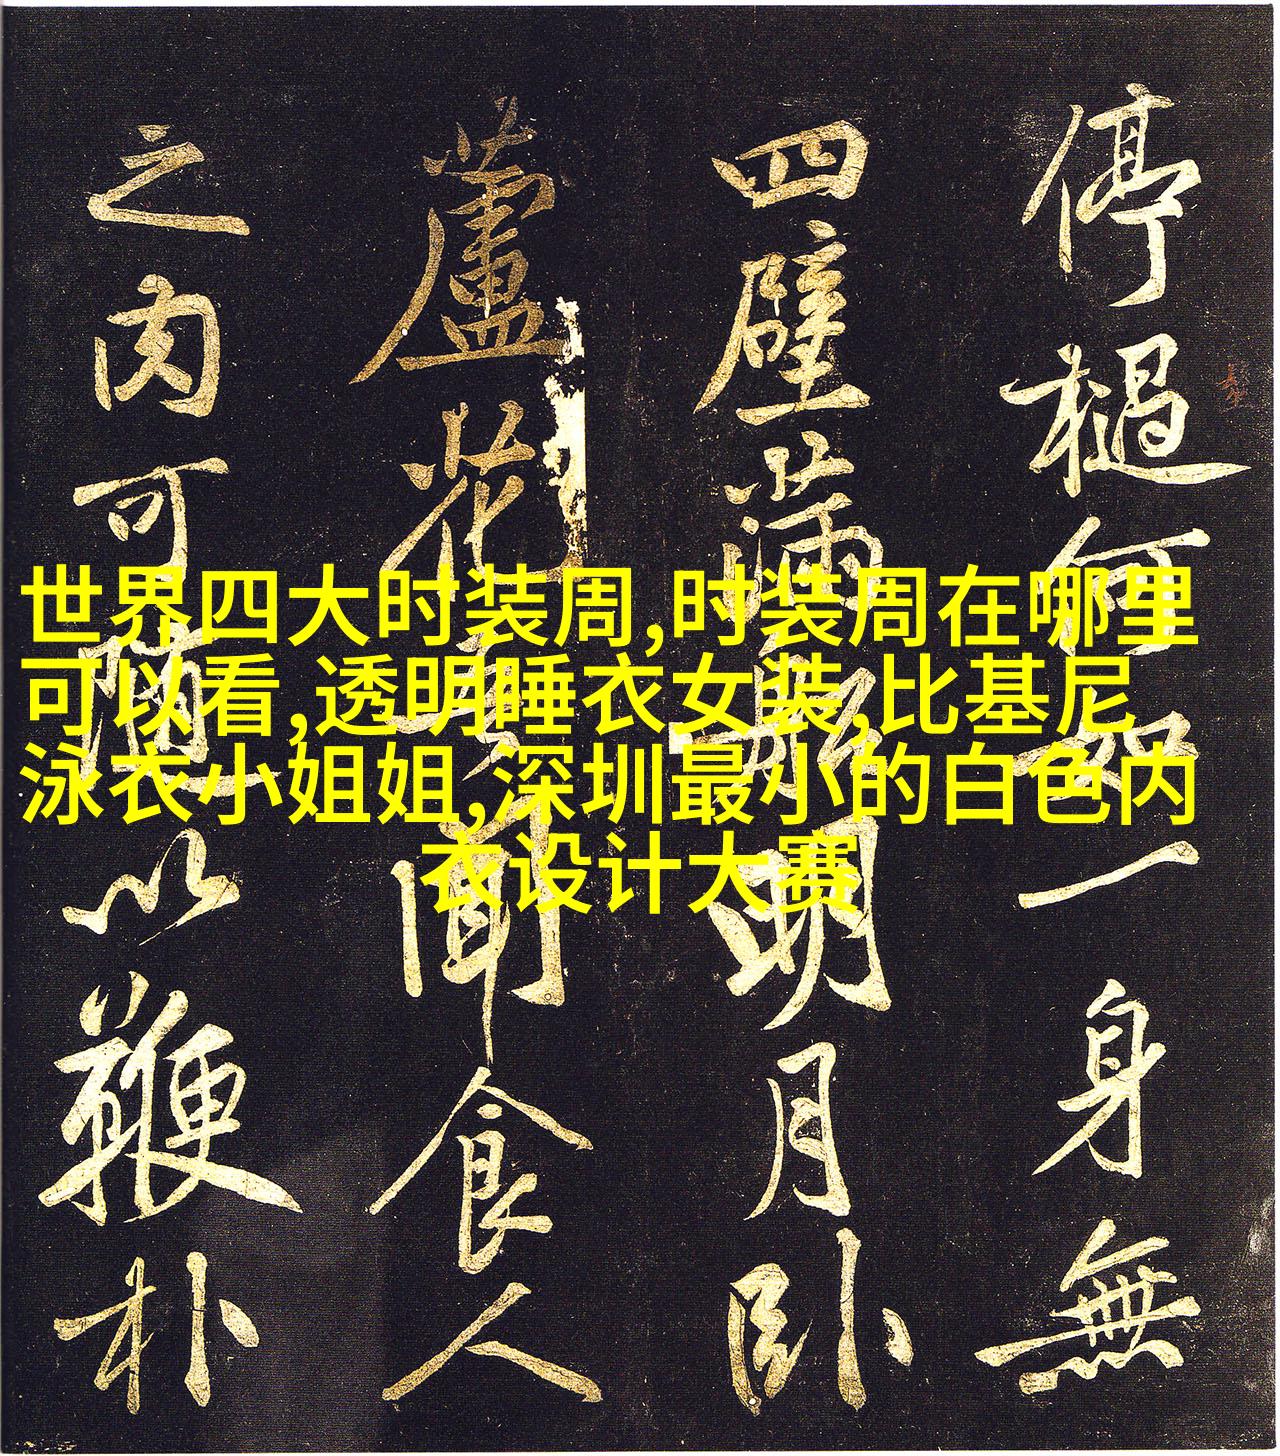 停檛何如一身無
四壁滿明月卧
蘆花聞食人
之肉可隨以鞭朴
世界四大时装周,时装周在哪里
可以看,透明睡衣女装,比基尼
泳衣小姐姐,深圳最小的白色内
衣设计大赛